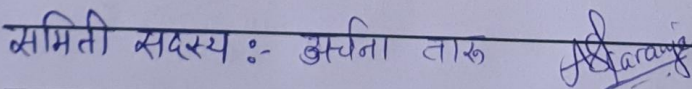 समिती सदस्य :- अर्चना तारु